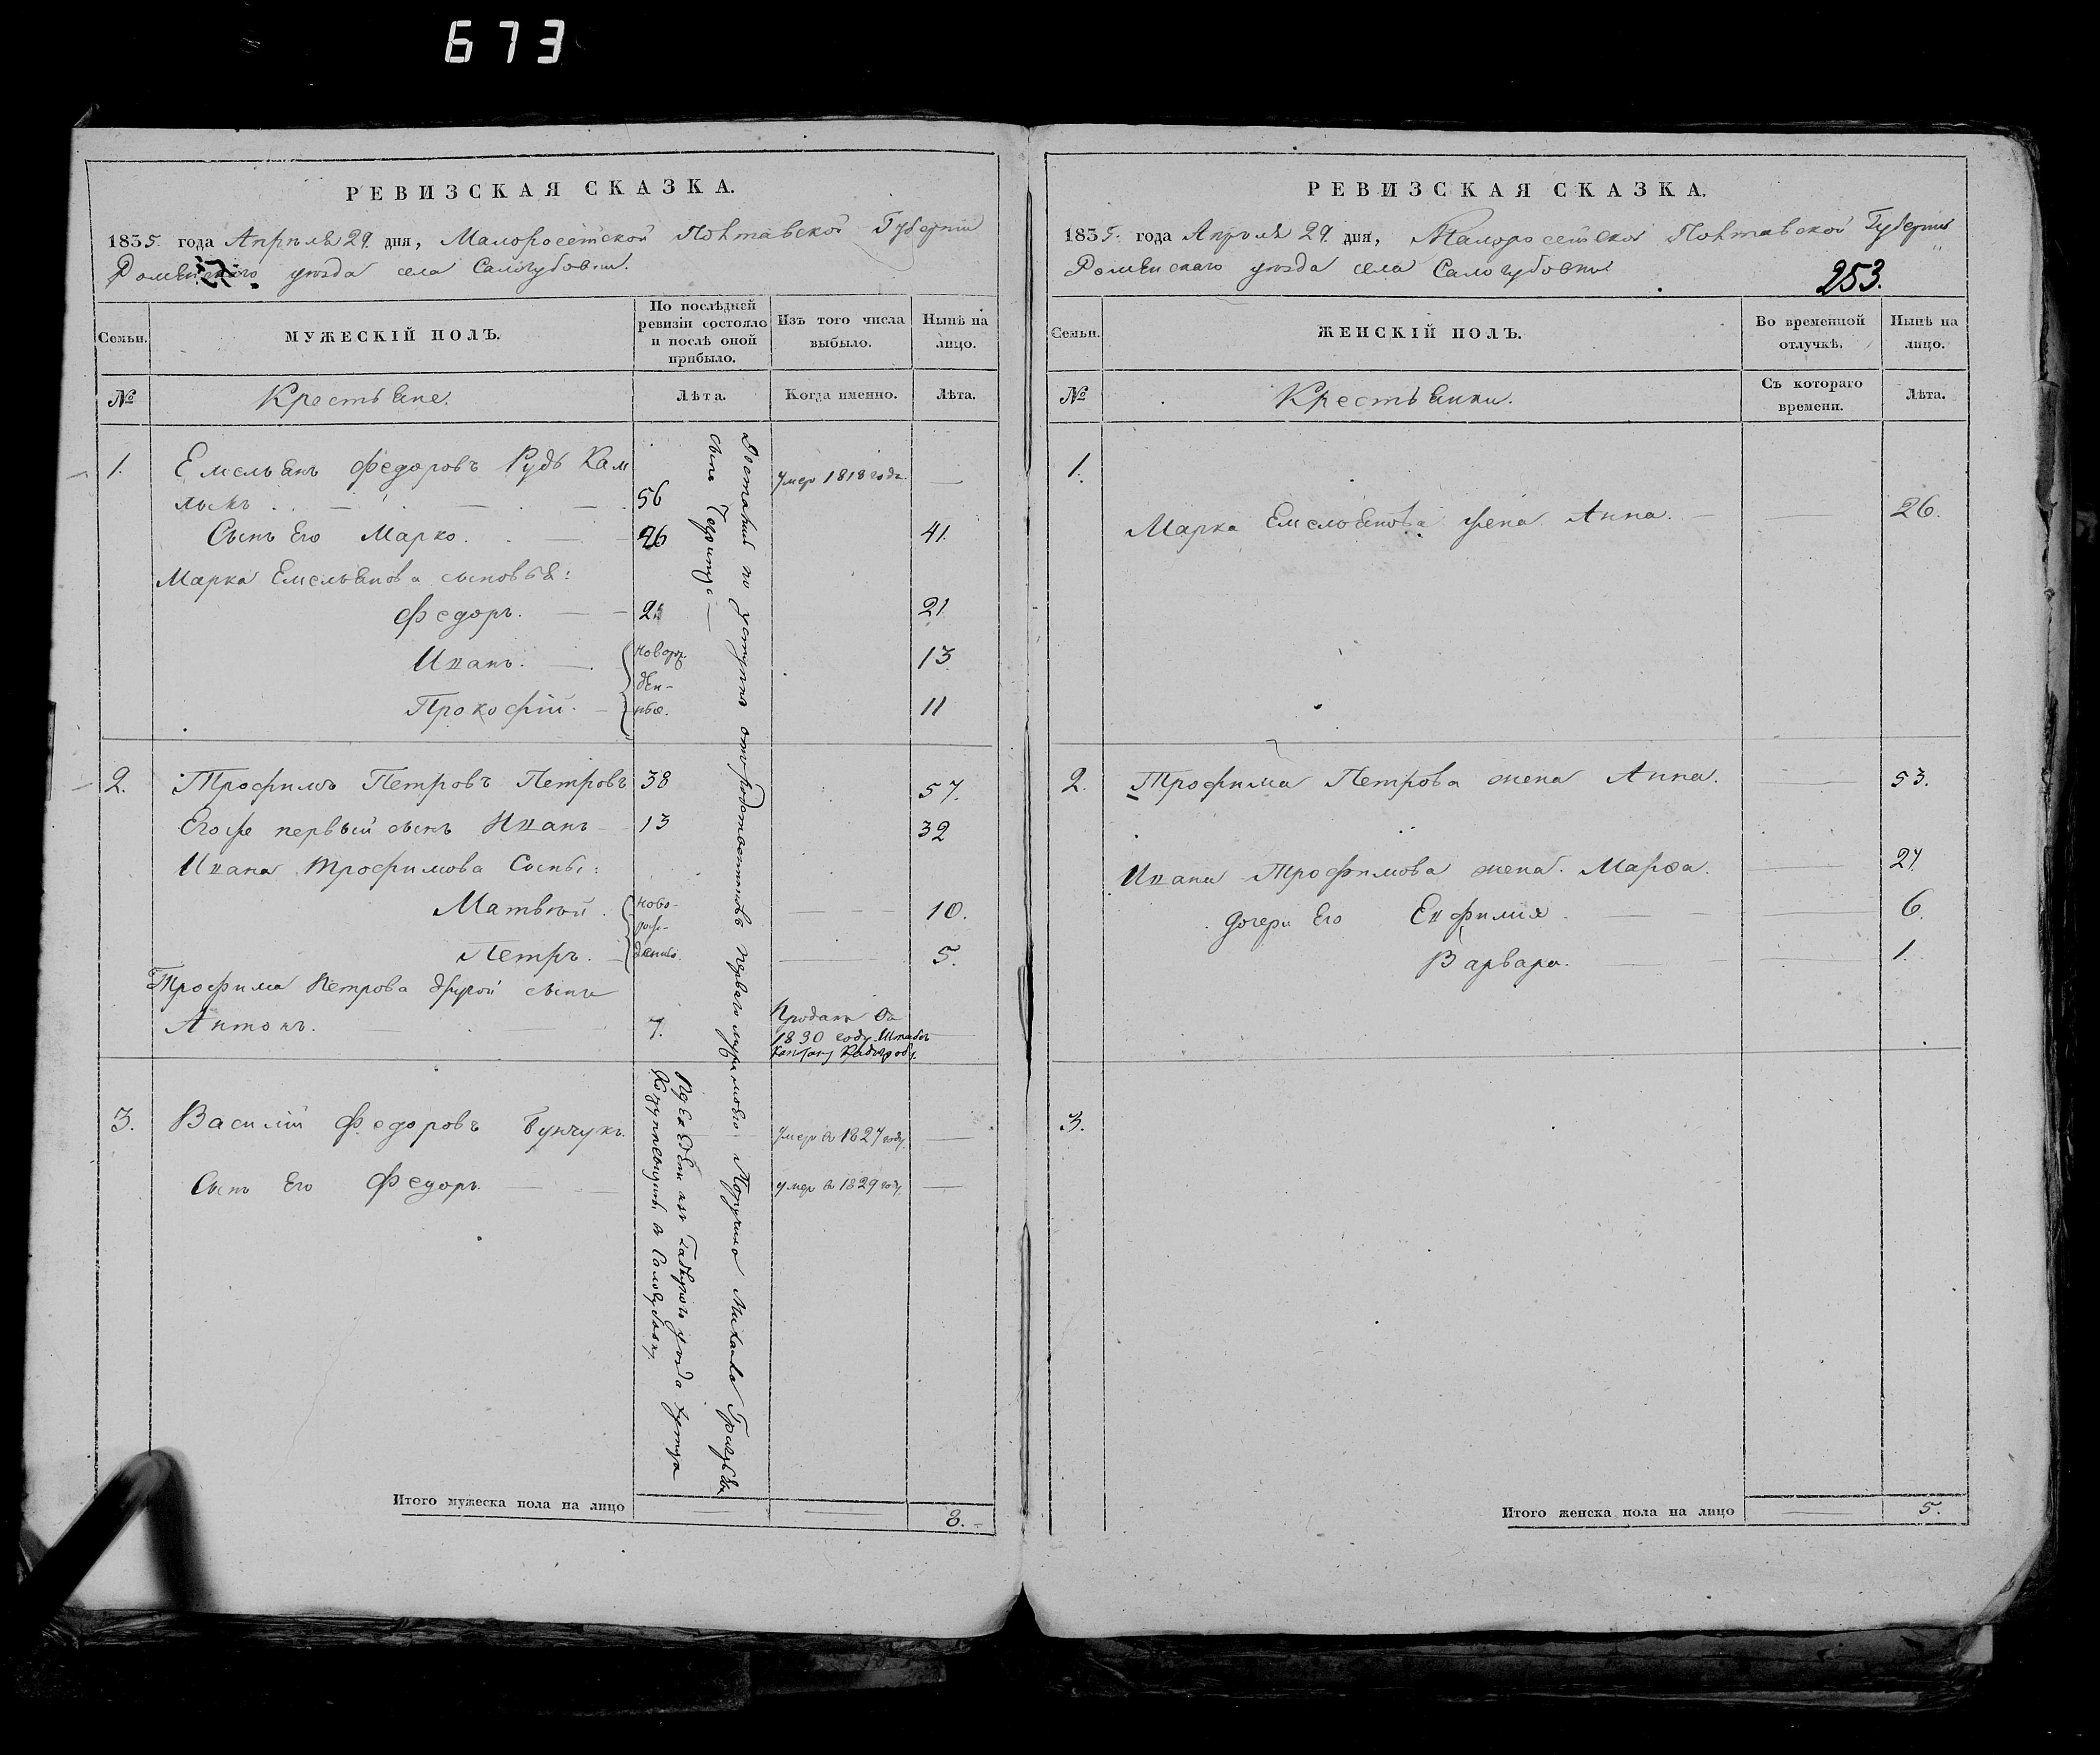 673
РЕВИЗСКАЯ СКАЗКА.
1835. года Апрѣля 29. дня, Малоросетской Полтавской Губерніи
Роменскаго уезда села Салогубовки.
Семьи.
МУЖЕСКІЙ ПОЛЪ.
По послѣдней ревизіи состояло и послѣ оной прибыло.
Изъ того числа выбыло.
Нынѣ на лицо.
№
Крестьяне.
Лѣта.
Когда именно.
Лѣта.
1. Емельянъ Федоровъ Рудь Кам
лыкъ 56 Умер 1818 года.
Сынъ Его Марко. 26 41.
Марка Емельянова сыновья:
Федоръ. 2 21
Иванъ. 13
Прокофій. 11
новорож-
ден-
ные.
2. Трофимъ Петровъ Петровъ 38 57.
Егоже первый сынъ Иванъ 13 32
Ивана Трофимова Сыны:
Матвѣй. 10.
Петръ. 5.
ново-
рож-
денные.
Трофима Петрова другой сынъ
Антонъ. 7.
Проданъ въ
1830 году Штабсъ
Капитану
3. Василій Федоровъ Бунчукъ. Умеръ въ 1827 году.
Сынъ Его Федоръ. умер в 1829 году.
Достались по уступке отъ родственниковъ первого мужа моего Поручика Михаила
сына
из Гадяцкого уезда хутора
в Салогубовку.
Итого мужеска пола на лицо 8.
РЕВИЗСКАЯ СКАЗКА.
1835. года Апрѣля 29. дня, Малоросетской Полтавской Губерніи
Роменскаго уезда села Салогубовки
253.
Семьи.
ЖЕНСКІЙ ПОЛЪ.
Во временной отлучкѣ.
Нынѣ на лицо.
№
Крестьянки.
Съ котораго времени.
Лѣта.
1.
Марка Емельянова жена Анна. 26.
2. Трофима Петрова жена Анна. 53.
Ивана Трофимова жена. Марфа. 27.
дочери Его Евфимия 6.
Варвара. 1.
3.
Итого женска пола на лицо 5.